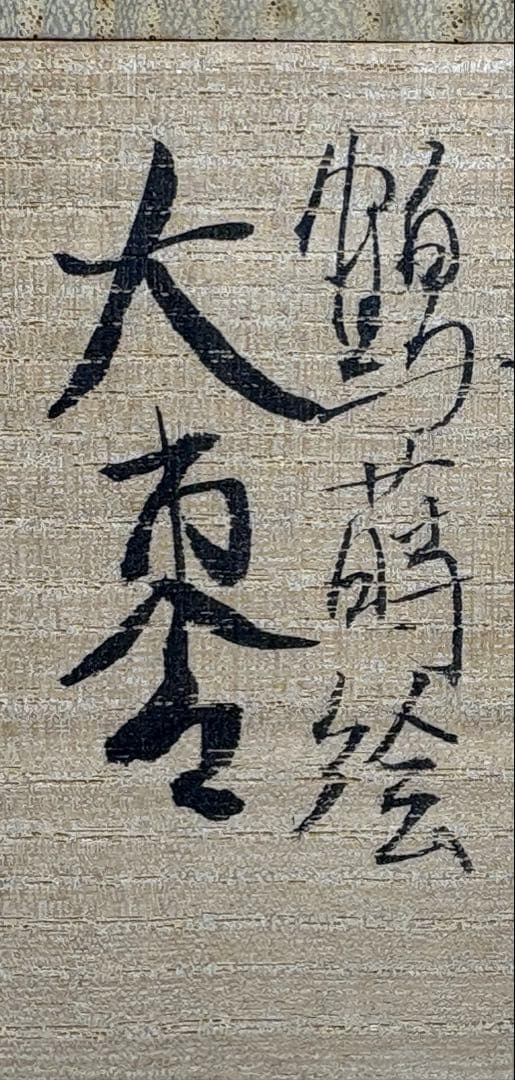 蒔絵
大棗